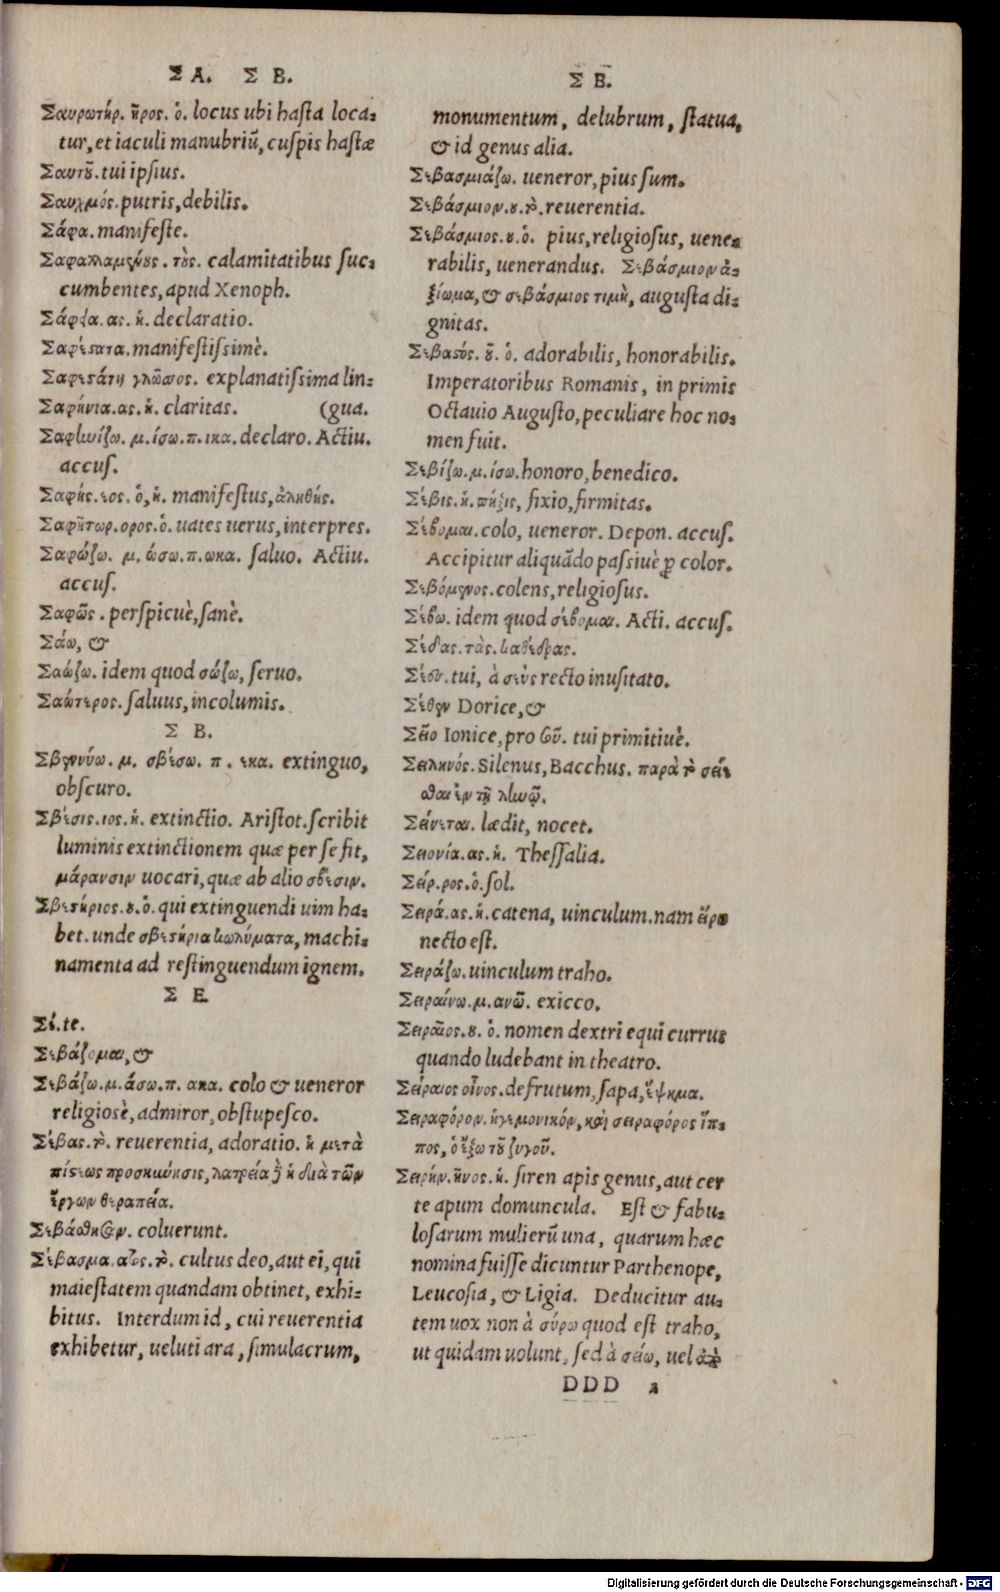 ΣΑ. ΣΒ.
Σαυρωτήρ. ῆρος. ὁ. locus ubi hasta loca-
tur, et iaculi manubriũ, cuspis hastæ
Σαυτȣ͂. tui ipsius.
Σαυχμός. putris, debilis.
Σάφα. manifeste.
calamitatibus suc-
cumbentes, apud Xenoph.
Σάφεια. ας. ἡ. declaratio.
Σαφέϛατα. manifestissimè.
Σαφεϛάτη γλῶσσος. explanatissima lin-
Σαφήνια. ας. ἡ. claritas. (gua.
Σαφηνίζω. μ. ίσω. π. ικα. declaro. Actiu.
accus.
Σαφής. έος. ὁ, ἡ. manifestus, ἀληθής.
Σαφήτωρ. ορος. ὁ. uates uerus, interpres.
Σαφώζω. μ. ώσω. π. ωκα. saluo. Actiu.
accus.
Σαφῶς. perspicuè, sanè.
Σάω, &
Σαώζω. idem quod σώζω, seruo.
Σαώτερος. saluus, incolumis.
Σ Β.
Σβεννύω. μ. σβέσω. π. εκα. extinguo,
obscuro.
Σβέσις. ιος. ἡ. extinctio. Aristot. scribit
luminis extinctionem quæ per se fit,
μάρανσιν uocari, quæ ab alio σβέσιν.
Σβεϛήριος. ȣ. ὁ. qui extinguendi uim ha-
bet. unde σβεϛήρια κωλύματα, machi-
namenta ad restinguendum ignem.
Σ Ε.
Σέ. te.
Σεβάζομαι, &
Σεβάζω. μ. άσω. π. ακα. colo & ueneror
religiosè, admiror, obstupesco.
Σέβας. τό. reuerentia, adoratio. ἡ μετὰ
πίϛεως προσκύνησις, λατρεία δὲ ἡ διὰ τῶν
ἔργων θεραπεία.
Σεβάσθησαν. coluerunt.
Σέβασμα. ατος. τό. cultus deo, aut ei, qui
maiestatem quandam obtinet, exhi-
bitus. Interdum id, cui reuerentia
exhibetur, ueluti ara, simulacrum,
Σ Β.
monumentum, delubrum, statua,
& id genus alia.
Σεβασμιάζω. ueneror, pius sum.
Σεβάσμιον. ȣ. τό. reuerentia.
Σεβάσμιος. ȣ. ὁ. pius, religiosus, uene-
rabilis, uenerandus. Σεβάσμιον ἀ-
ξίωμα, & σεβάσμιος τιμὴ, augusta di-
gnitas.
Σεβαϛός. ȣ͂. ὁ. adorabilis, honorabilis.
Imperatoribus Romanis, in primis
Octauio Augusto, peculiare hoc no-
men fuit.
Σεβίζω. μ. ίσω. honoro, benedico.
Σέβις. ἡ. πῆξις, fixio, firmitas.
Σέβομαι. colo, ueneror. Depon. accus.
Accipitur aliquãdo passiuè ꝓ color.
Σεβόμενος. colens, religiosus.
Σέβω. idem quod σέβομαι. Acti. accus.
Σέδας. τὰς. καθέδρας.
tui, à recto inusitato.
Σέθεν Dorice, &
Σεῖο Ionice, pro σοῦ. tui primitiuè.
Σειληνός. Silenus, Bacchus. παρὰ τὸ σείε
σθαι ἐν τῇ ληνῷ.
Σείνεται. lædit, nocet.
Σειονία. ας. ἡ. Thessalia.
Σείρ. ρος. ὁ. sol.
Σειρά. ας. ἡ. catena, uinculum. nam εἴρω
necto est.
Σειράζω. uinculum traho.
Σειραίνω. μ. ανῶ. exicco.
Σειραῖος. ȣ. ὁ. nomen dextri equi currus
quando ludebant in theatro.
Σείραιος οἶνος. defrutum, sapa, ἕψημα.
Σειραφόρον. ἡγεμονικόν, καὶ σειραφόρος ἵπ-
πος, ὁ ἔξω τȣ͂ ζυγοῦ.
Σειρήν. ῆνος. ἡ. siren apis genus, aut cer
te apum domuncula. Est & fabu-
losarum mulierũ una, quarum hæc
nomina fuisse dicuntur Parthenope,
Leucosia, & Ligia. Deducitur au-
tem uox non à σύρω quod est traho,
ut quidam uolunt, sed à σείω, uel ἀπὸ
DDD 2
Digitalisierung gefördert durch die Deutsche Forschungsgemeinschaft - DFG